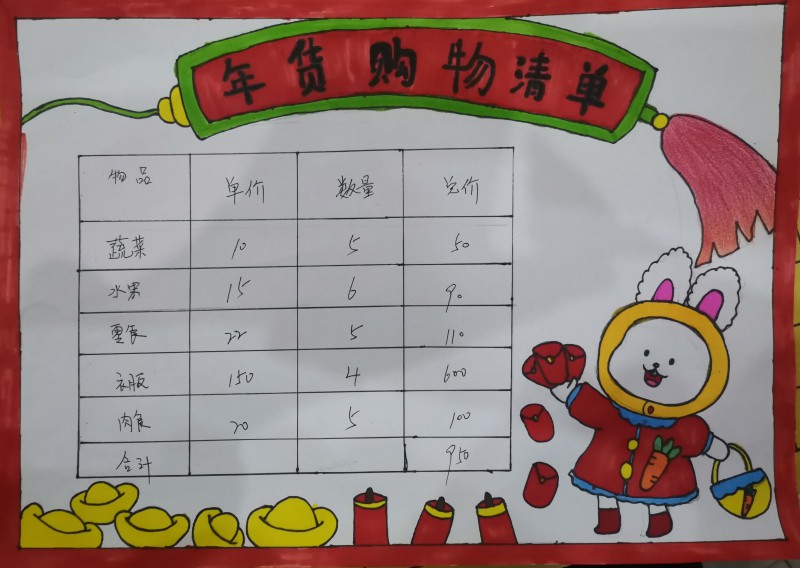 年货购物清单
物品 单价 数量 总价
蔬菜 10 5 50
水果 15 6 90
零食 22 5 110
衣服 150 4 600
肉食 20 5 100
合计 950